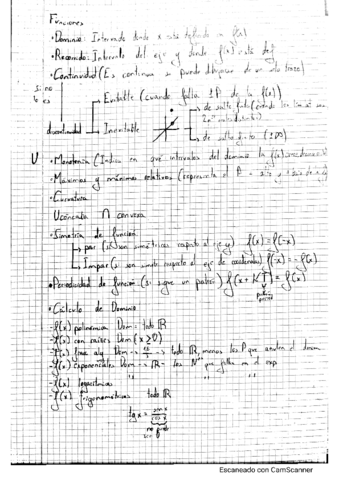 Funciones
• Dominio: Intervalo donde x está definida en f(x)
• Recorrido: Intervalo del eje y donde f(x) está def
• Continuidad (Es continua si puede dibujarse de un solo trazo)
si no
lo es
Evitable (cuando falta 1P de la f(x))
de salto finito (cuando los lim si son
discontinuidad
Inevitable
de salto infinito (±∞)
U • Monotonía (Indica en qué intervalos del dominio la f(x)
• Máximos y mínimos relativos (representa el
• Curvatura
U concavidad ∩ convexa
• Simetría de función
par (si son simétricas respecto al eje y) f(x) = f(-x)
Impar (si son simét respecto al eje de coordenadas) f(x) = -f(x)
• Periodicidad de función (si sigue un patrón) f(x + KT) = f(x)
• Cálculo de Dominio
- f(x) polinómica Dom = todo ℝ
- f(x) con raíces Dom {x ≥ 0}
- f(x) frac alg Dom --> todo ℝ, menos los P que anulen el denom
- f(x) exponenciales Dom --> ℝ - los Nos que fallen en el exp
- f(x) logarítmicas " "
- f(x) trigonométricas todo ℝ
tg x = sin x / cos x
no puede
ser 0
Escaneado con CamScanner